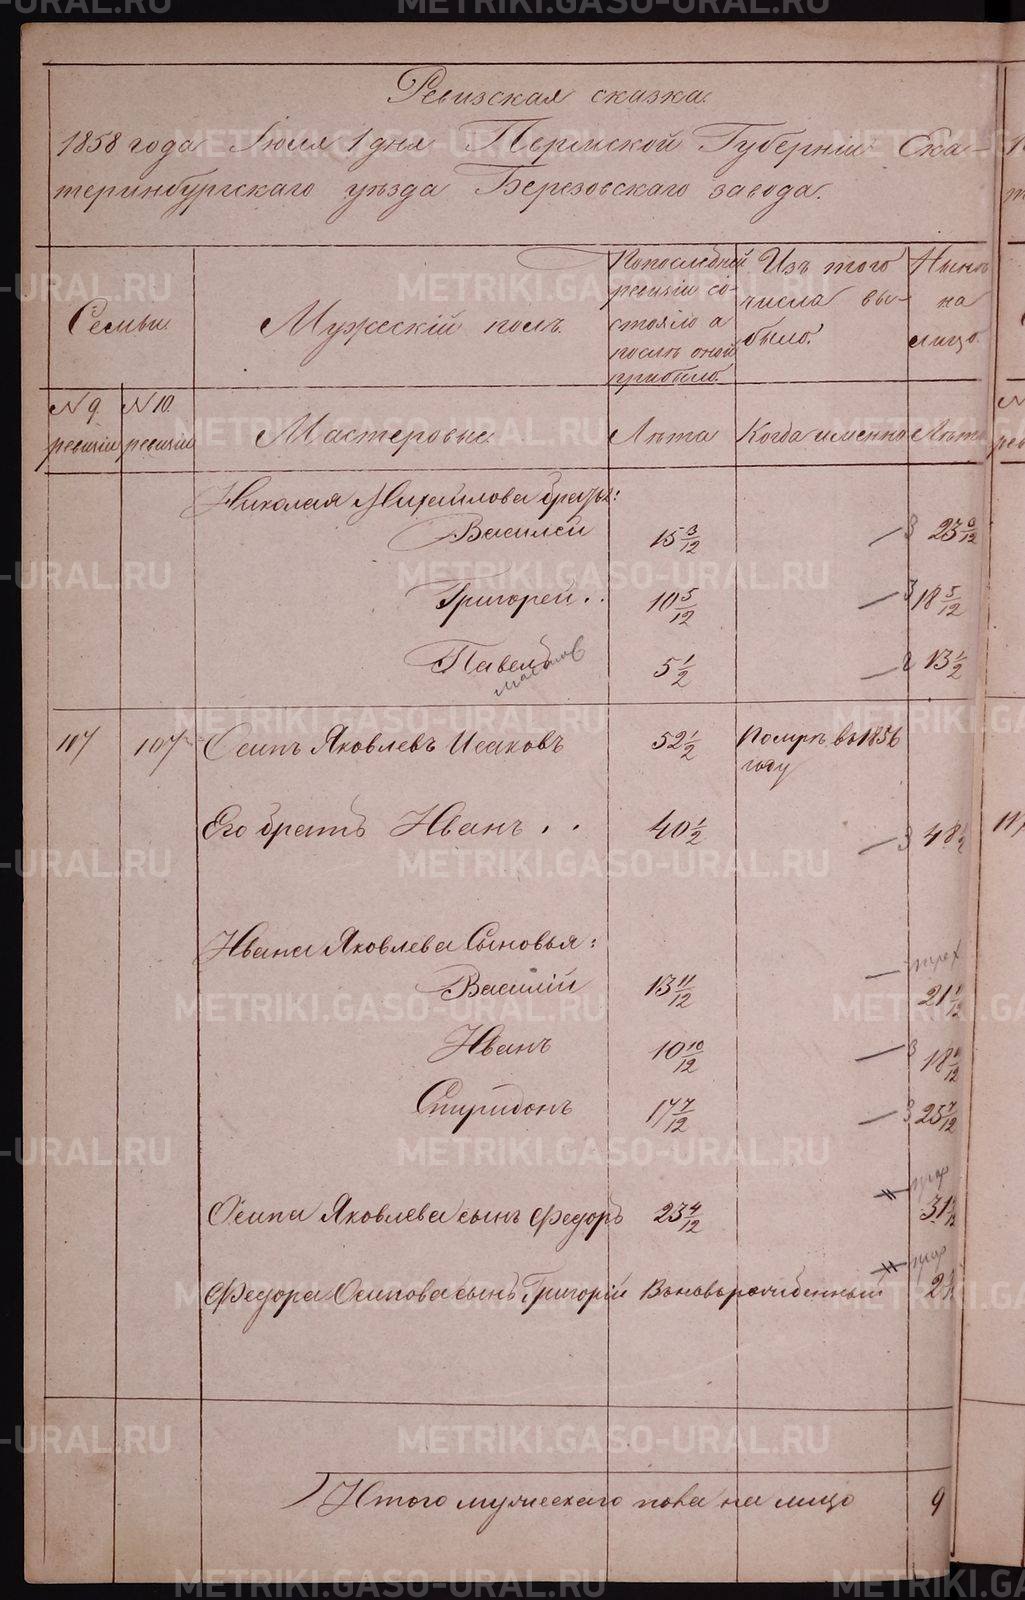 Ревизская сказка.
1858 года Іюля 1 дня Пермской Губерніи Ека-
теринбургскаго уѣзда Березовскаго завода.
Семьи.
Мужескій полъ.
По последней ревизіи со-стояло а послѣ оной прибыло.
Изъ того числа вы-было.
Нынѣ на лицо.
N 9. ревизіи
N 10. ревизіи
Мастеровые.
Лѣта
Когда именно
Лѣта
Николая Михайлова братья:
Василей 15 3/12 3 23
Григорей . . 10 5/12 3 18 5/12
Павелъ 5 1/2 13 1/2
107 107 Осипъ Яковлевъ Исаковъ 52 1/2 Помръ въ 1856 году
Его братъ Иванъ . . 40 1/2 3 48 1/2
Ивана Яковлева Сыновья:
Василій 13 11/12 21
Иванъ 10 10/12 3 18
Спиридонъ 17 7/12 3 25 7/12
Осипа Яковлева сынъ Федоръ 23 4/12 31
Федора Осипова сынъ Григорій Вновьрожденный 2
Итого мужескаго пола на лицо 9
METRIKI.GASO-URAL.RU